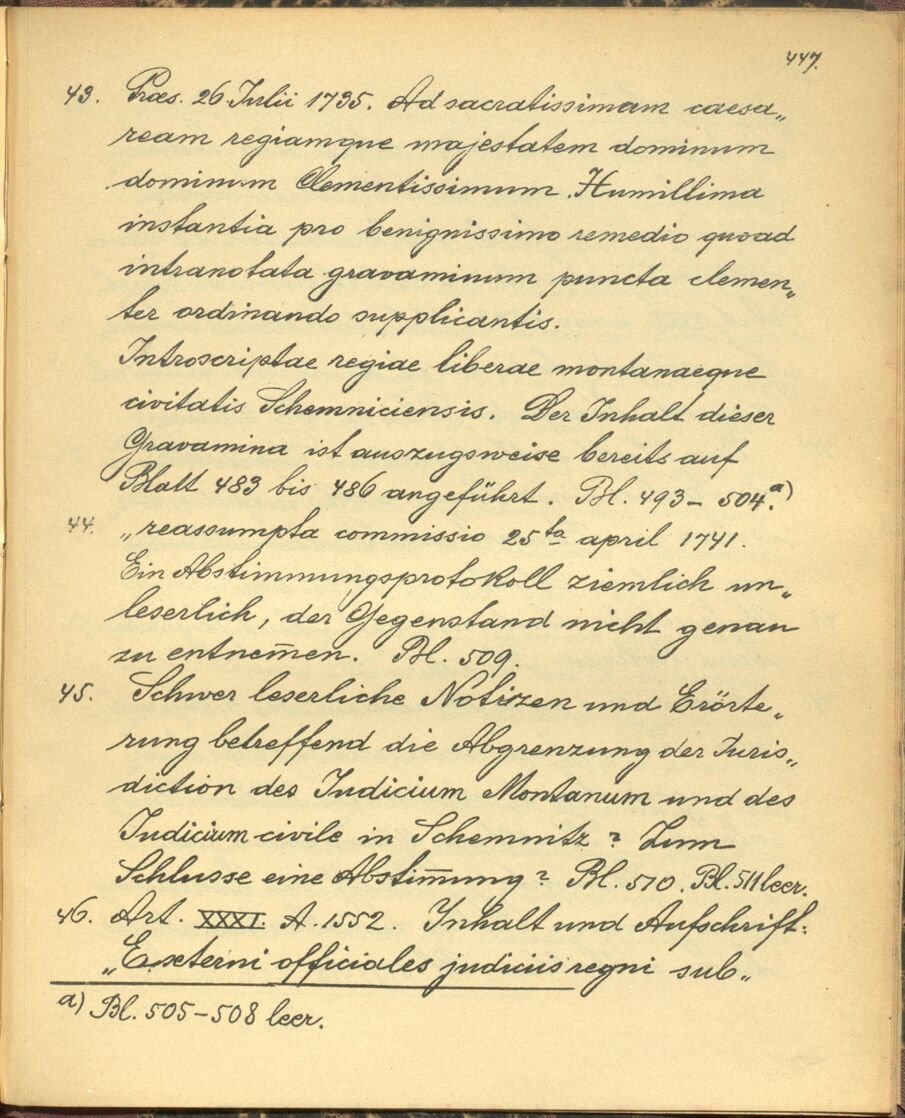 447.
43. Præs. 26 Julii 1735. Ad sacratissimam caesa„
ream regiamque majestatem dominum
dominum Clementissimum. Humillima
instantia pro benignissimo remedio quoad
intranotata gravaminum puncta clemen„
ter ordinando supplicantis.
Introscriptae regiae liberae montanaeque
civitatis Schemniciensis. Der Inhalt dieser
Gravamina ist auszugsweise bereits auf
Blatt 483 bis 486 angeführt. Bl. 493 – 504.a)
44. „reassumpta commissio 25ta april 1741.
Ein Abstimmungsprotokoll ziemlich un„
leserlich, der Gegenstand nicht genau
zu entnem̄en. Bl. 509.
45. Schwer leserliche Notizen und Erörte„
rung betreffend die Abgrenzung der Juris„
diction des Judicium Montanum und des
Judicium civile in Schemnitz? Zum
Schlusse eine Abstim̄ung? Bl. 510. Bl. 511 leer.
46. Art. XXXI. A. 1552. Inhalt und Aufschrift:
„Externi officiales judiciis regni sub„
a) Bl. 505–508 leer.